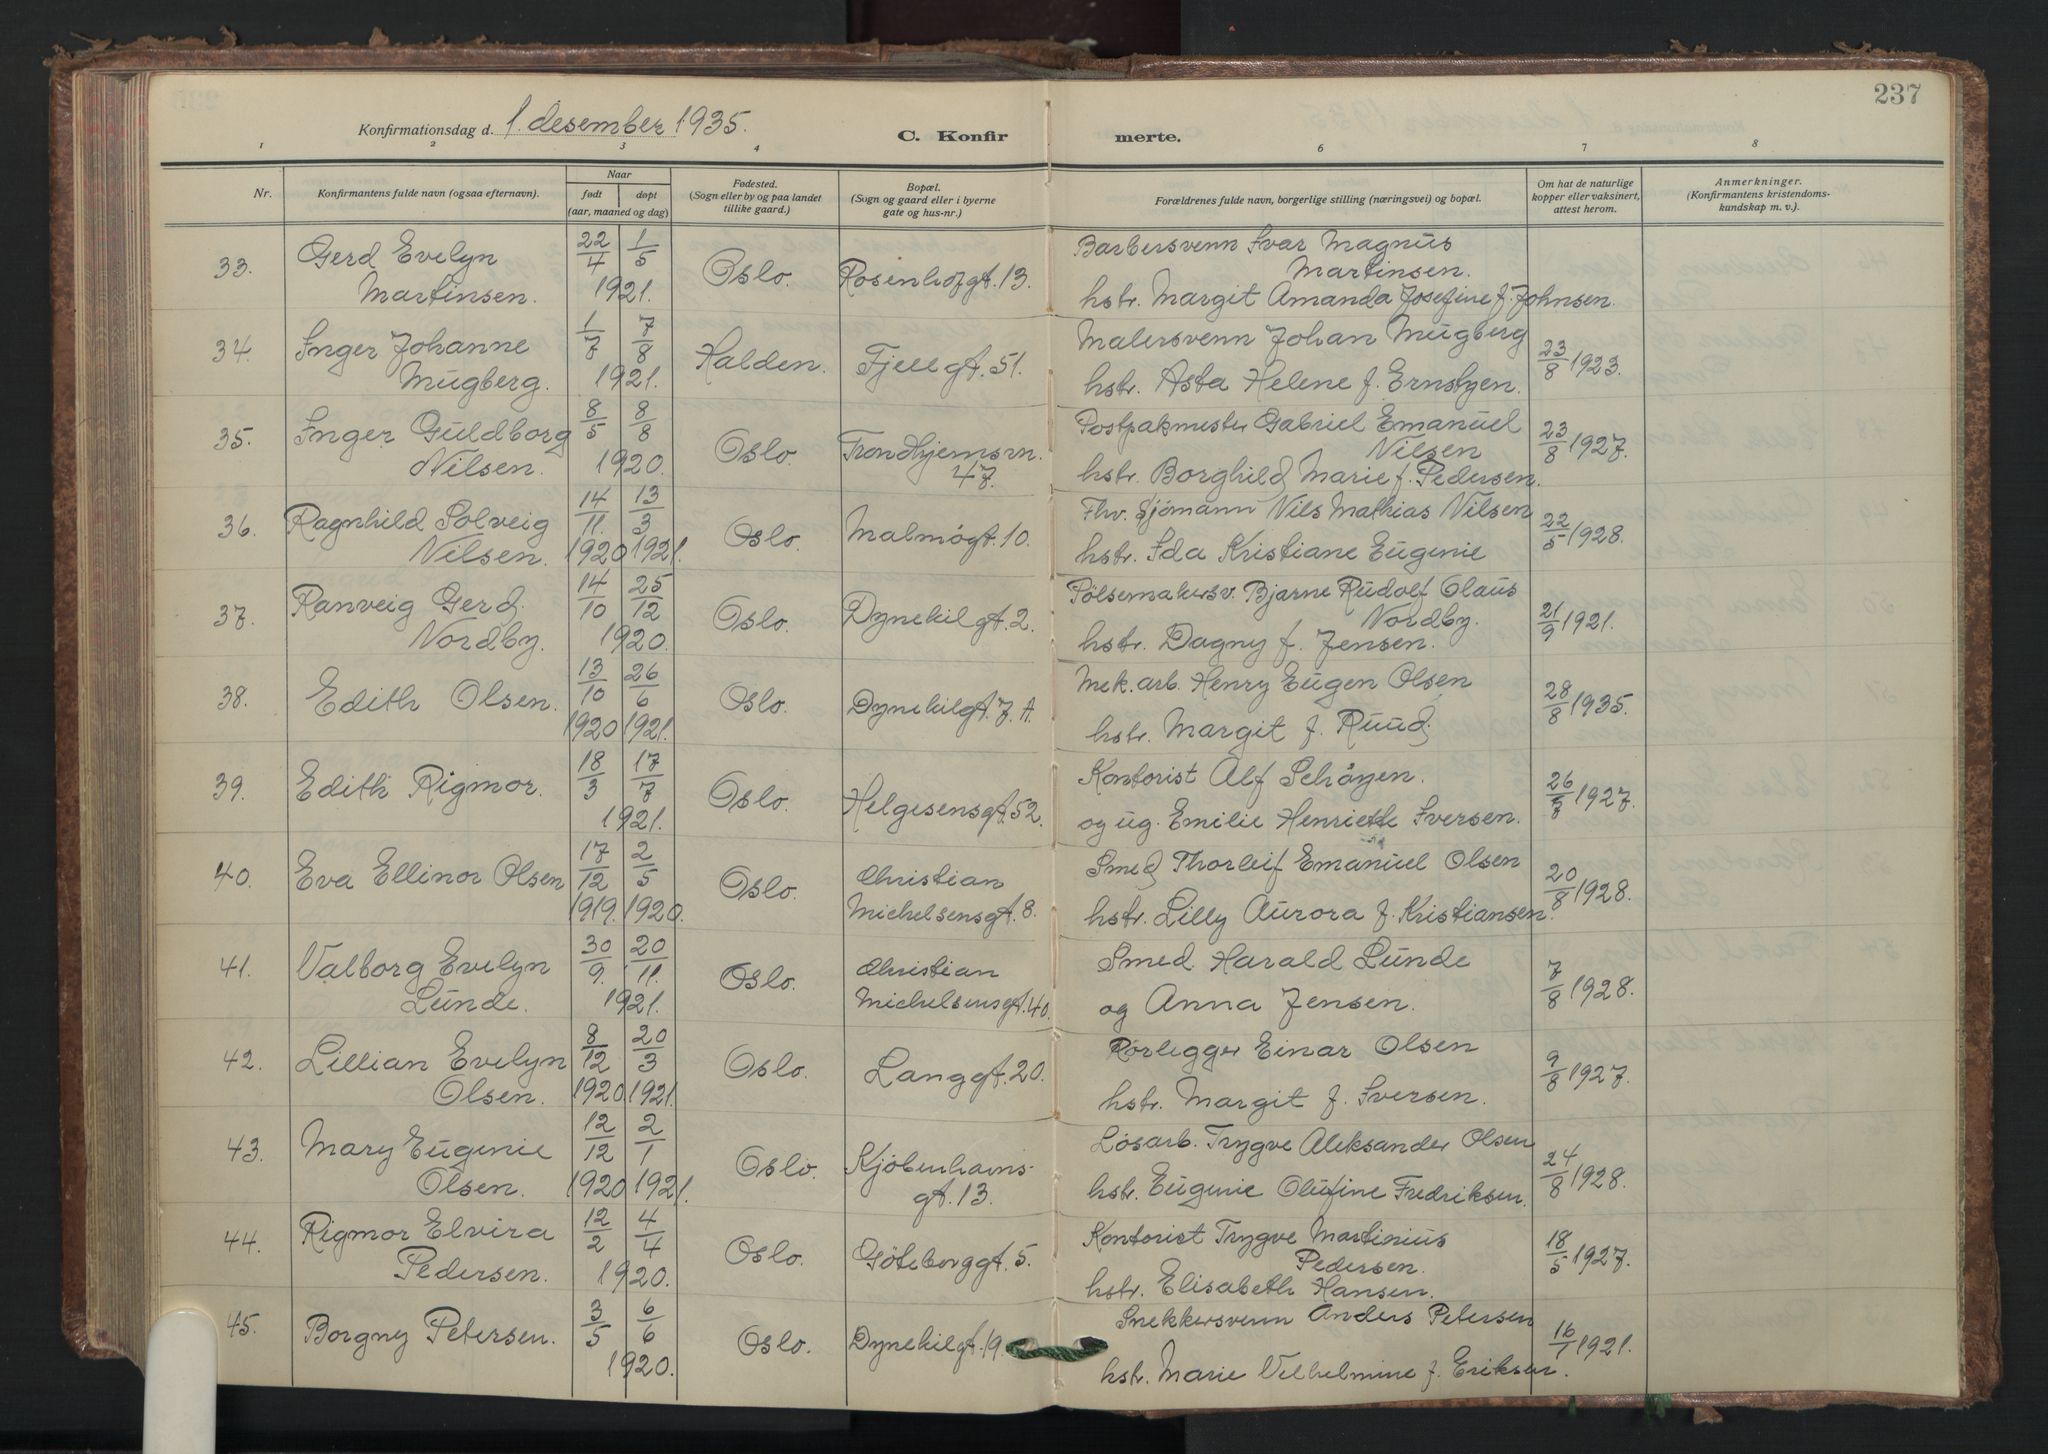 237
Konfirmationsdag d. 1. desember 1935.
C. Konfir merte.
1 2 3 4 6 7 8
Nr.
Konfirmantens fulde navn (ogsaa efternavn).
Naar
født døpt
(aar, maaned og dag)
Fødested.
(Sogn eller by og paa landet
tillike gaard.)
Bopæl.
(Sogn og gaard eller i byerne
gate og hus-nr.)
Forældrenes fulde navn, borgerlige stilling (næringsvei) og bopæl.
Om hat de naturlige
kopper eller vaksinert,
attest herom.
Anmerkninger.
(Konfirmantens kristendoms-
kundskap m. v.).
33. Gerd Evelyn 22/4 1/5 Oslo. Rosenhofgt. 13. Barbersvenn Ivar Magnus
Martinsen. 1921. Martinsen.
hstr. Margit Amanda Josefine f. Johnsen.
34. Inger Johanne 1/7 7/8 Halden. Fjellgt. 51. Malersvenn Johan Mugberg 23/8 1923.
Mugberg. 1921. hstr. Asta Helene f. Ernstzen.
35. Inger Guldborg 8/5 8/8 Oslo. Trondhjemsvn. Postpakmester Gabriel Emanuel 23/8 1927.
Nilsen. 1920. 47. Nilsen
hstr. Borghild Marie f. Pedersen.
36. Ragnhild Solveig 14/11 13/3 Oslo. Malmøgt. 10. Fhv. Sjømann Nils Mathias Nilsen 22/5 1928.
Nilsen. 1920 1921. hstr. Ida Kristiane Eugenie
37. Ranveig Gerd 14/10 25/12 Oslo. Dynekilgt. 2. Pølsemakersv. Bjarne Rudolf Olaus 21/9 1921.
Nordby. 1920. Nordby.
hstr. Dagny f. Jensen.
38. Edith Olsen. 13/10 26/6 Oslo. Dynekilgt. 7. A. Mek. arb. Henry Eugen Olsen 28/8 1935.
1920 1921. hstr. Margit f. Ruud.
39. Edith Rigmor. 18/3 17/7 Oslo. Helgesensgt. 52. Kontorist Alf Schøyen. 26/8 1927.
1921. og ug. Emilie Henriette Iversen.
40. Eva Ellinor Olsen 17/12 2/5 Oslo. Christian Smed Thorleif Emanuel Olsen 20/8 1928.
1919. 1920. Michelsensgt. 8. hstr. Lilly Aurora f. Kristiansen.
41. Valborg Evelyn 30/9. 20/11. Oslo. Christian Smed. Harald Lunde 7/8 1928.
Lunde. 1921. Michelsensgt. 40. og Anna Jensen.
42. Lillian Evelyn 8/12 20/3 Oslo. Langgt. 20. Rørlegger Einar Olsen 9/8 1927.
Olsen. 1920 1921. hstr. Margit f. Iversen.
43. Mary Eugenie 12/12 2/1 Oslo. Kjøbenhavns- Løsarb. Trygve Aleksander Olsen 24/8 1928.
Olsen. 1920 1921. gt. 13. hstr. Eugenie Olufine Fredriksen.
44. Rigmor Elvira 12/2 4/4 Oslo. Göteborggt. 5. Kontorist Trygve Martinius 18/5 1927.
Pedersen. 1920. Pedersen.
hstr. Elisabeth Hansen.
45. Borgny Petersen. 3/5 6/6 Oslo. Dynekilgt. 19. Snekkersvenn Anders Petersen 16/1 1921.
1920. hstr. Marie Vilhelmine f. Eriksen.